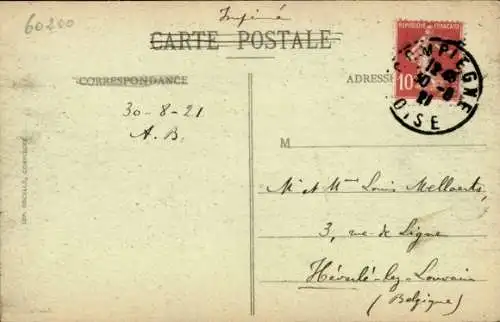 60200
Imprimé
CARTE POSTALE
CORRESPONDANCE
ADRESSE
REPUBLIQUE FRANCAISE
10
COMPIEGNE
OISE
30-8-21
A.B.
M
M. et Mme Louis Mellaerts
3, rue de Ligne
Héverlé-lez-Louvain
(Belgique)